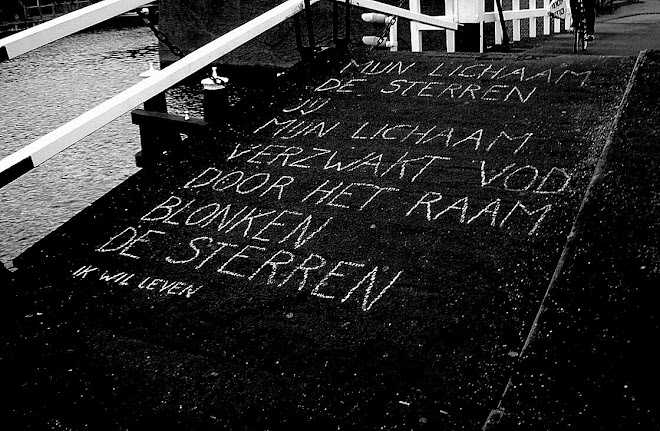 MIJN LICHAAM
DE STERREN
JIJ
MIJN LICHAAM
VERZWAKT VOD
DOOR HET RAAM
BLONKEN
DE STERREN
IK WIL LEVEN